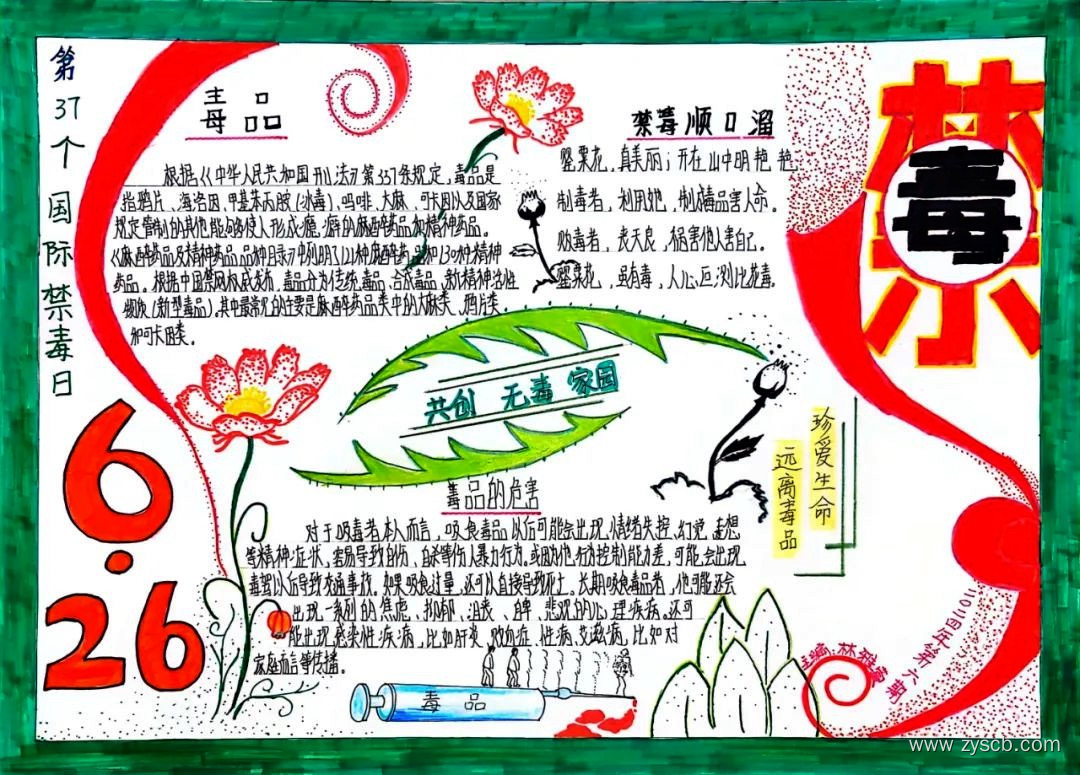 第37个国际禁毒日
6.26
毒品
根据《中华人民共和国刑法》第357条规定，毒品是
指鸦片、海洛因、甲基苯丙胺(冰毒)、吗啡、大麻、可卡因以及国家
规定管制的其他能够使人形成瘾癖的麻醉药品和精神药品。
《麻醉药品及精神药品品种目录》中列明了121种麻醉药品和130种精神
药品。根据中国禁毒网权威发布，毒品分为传统毒品、合成毒品、新精神活性
物质(新型毒品)。其中最常见的主要是麻醉药品类中的大麻类、鸦片类
和可卡因类。
禁毒顺口溜
罂粟花，真美丽；开在山中明艳艳
制毒者，利用她，制成毒品害人命。
贩毒者，丧天良，祸害他人害自己。
罂粟花，虽有毒，人心叵测比花毒。
禁毒
共创 无毒 家园
珍爱生命
远离毒品
毒品的危害
对于吸毒者本人而言，吸食毒品以后可能会出现情绪失控、幻觉、妄想
等精神症状，容易导致自伤、自杀等伤人暴力行为。或因为他行为控制能力差，可能会出现
毒驾以后导致交通事故。如果吸食过量，还可以直接导致死亡。长期吸食毒品者，他可能还会
出现一系列的焦虑、抑郁、沮丧、自卑、悲观的心理疾病。还可
能出现感染性疾病，比如肝炎、败血症、性病、艾滋病，比如对
家庭而言等传播。
毒品
二〇二四年第六期
主编：林雅
www.zyscb.com